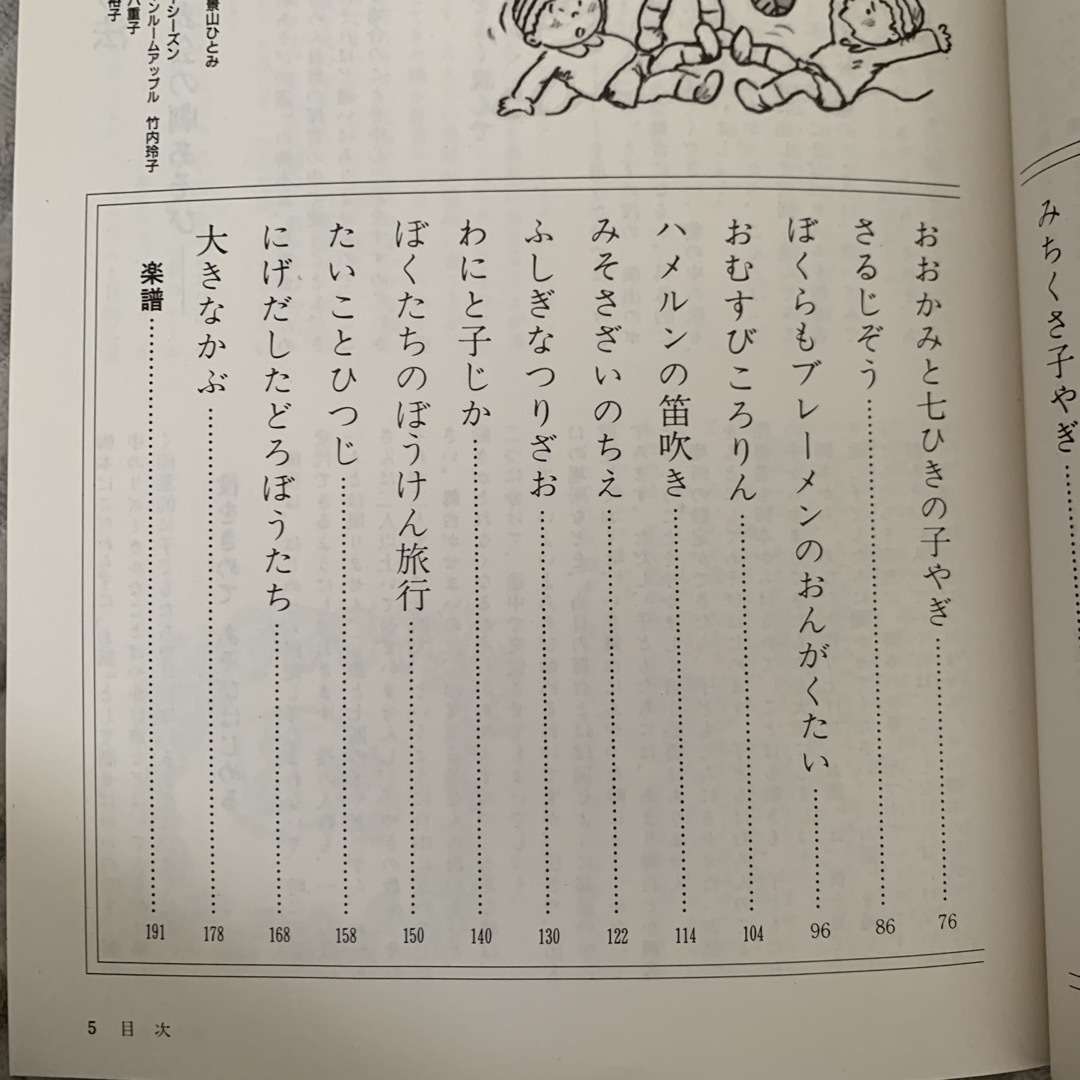 みちくさ子やぎ
景山ひとみ
シーズン
ンルームアップル 竹内玲子
八重子
裕子
おおかみと七ひきの子やぎ 76
さるじぞう 86
ぼくらもブレーメンのおんがくたい 96
おむすびころりん 104
ハメルンの笛吹き 114
みそさざいのちえ 122
ふしぎなつりざお 130
わにと子じか 140
ぼくたちのぼうけん旅行 150
たいことひつじ 158
にげだしたどろぼうたち 168
大きなかぶ 178
楽譜 191
5 目次